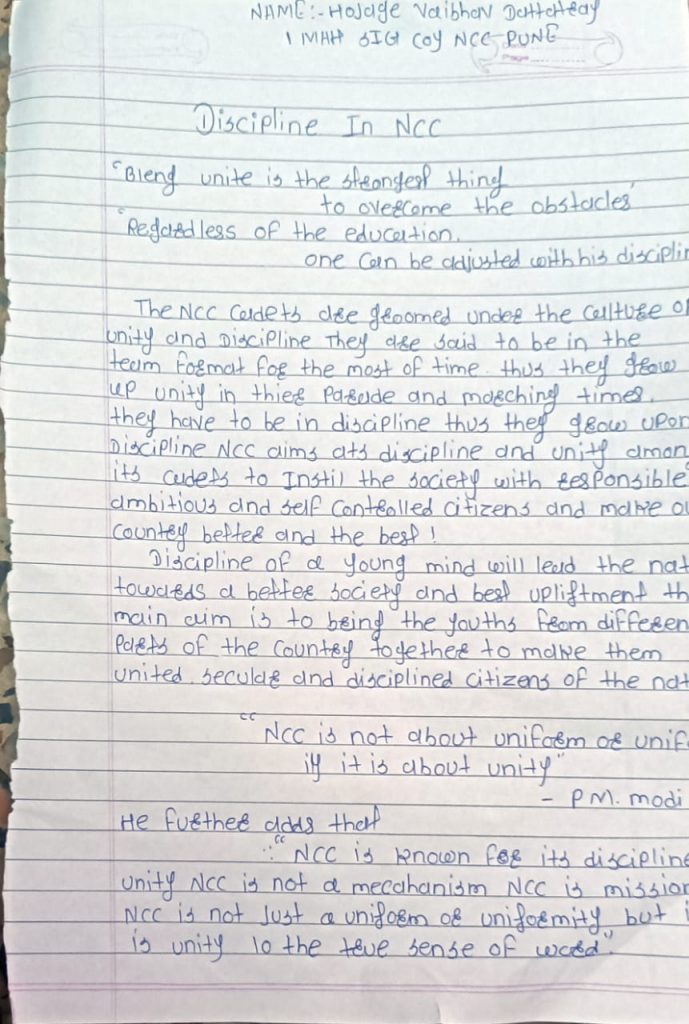 NAME:- Hojage Vaibhav Dattatray
1 MAH SIG COY NCC PUNE
Page
Discipline In NCC
"Bieng unite is the strongest thing
to overcome the obstacles"
"Regardless of the education.
one can be adjusted with his disciplin
The NCC Cadets are groomed under the culture of
unity and Discipline They are said to be in the
team format for the most of time. thus they grow
up unity in thier Parade and marching times.
they have to be in discipline thus they grow upon
Discipline NCC aims ats discipline and unity amon
its cadets to Instil the society with responsible
ambitious and self Controlled citizens and make ou
Country better and the best !
Discipline of a young mind will lead the nat
towards a better society and best upliftment th
main aim is to being the youths from differen
Parts of the Country together to make them
united secular and disciplined citizens of the nat
"NCC is not about uniform or unif
ity it is about unity"
- P.M. modi
He further adds that
"NCC is known for its discipline
unity NCC is not a mecahanism NCC is mission
NCC is not Just a uniform or uniformity but i
is unity io the true sense of word".